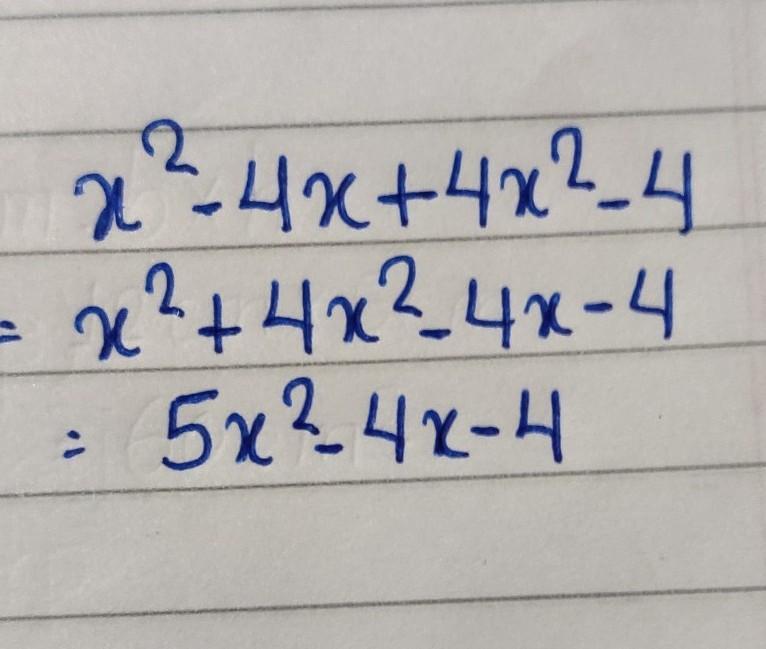 x² - 4x + 4x² - 4
= x² + 4x² - 4x - 4
= 5x² - 4x - 4